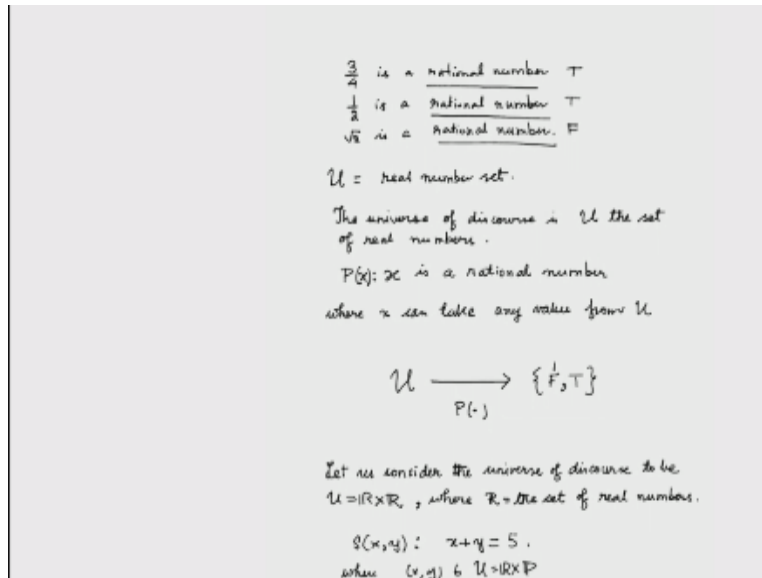 3/4 is a rational number T
1/2 is a rational number T
√2 is a rational number. F
U = real number set.
The universe of discourse is U the set
of real numbers.
P(x): x is a rational number
where x can take any value from U
U ⟶ {F, T}
P(·)
Let us consider the universe of discourse to be
U = ℝ×ℝ, where ℝ = the set of real numbers.
S(x,y): x+y = 5.
where (x,y) ∈ U = ℝ×ℝ